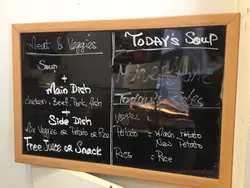 Meat & Veggies
Soup
+
Main Dish
Chicken, Beef, Pork, Fish
+
Side Dish
Veggies or Potato or Rice
Free Juice or Snack
Today's Soup
Today's Sides
Veggies :
Potato : Mash Potato
New Potato
Rice : Rice